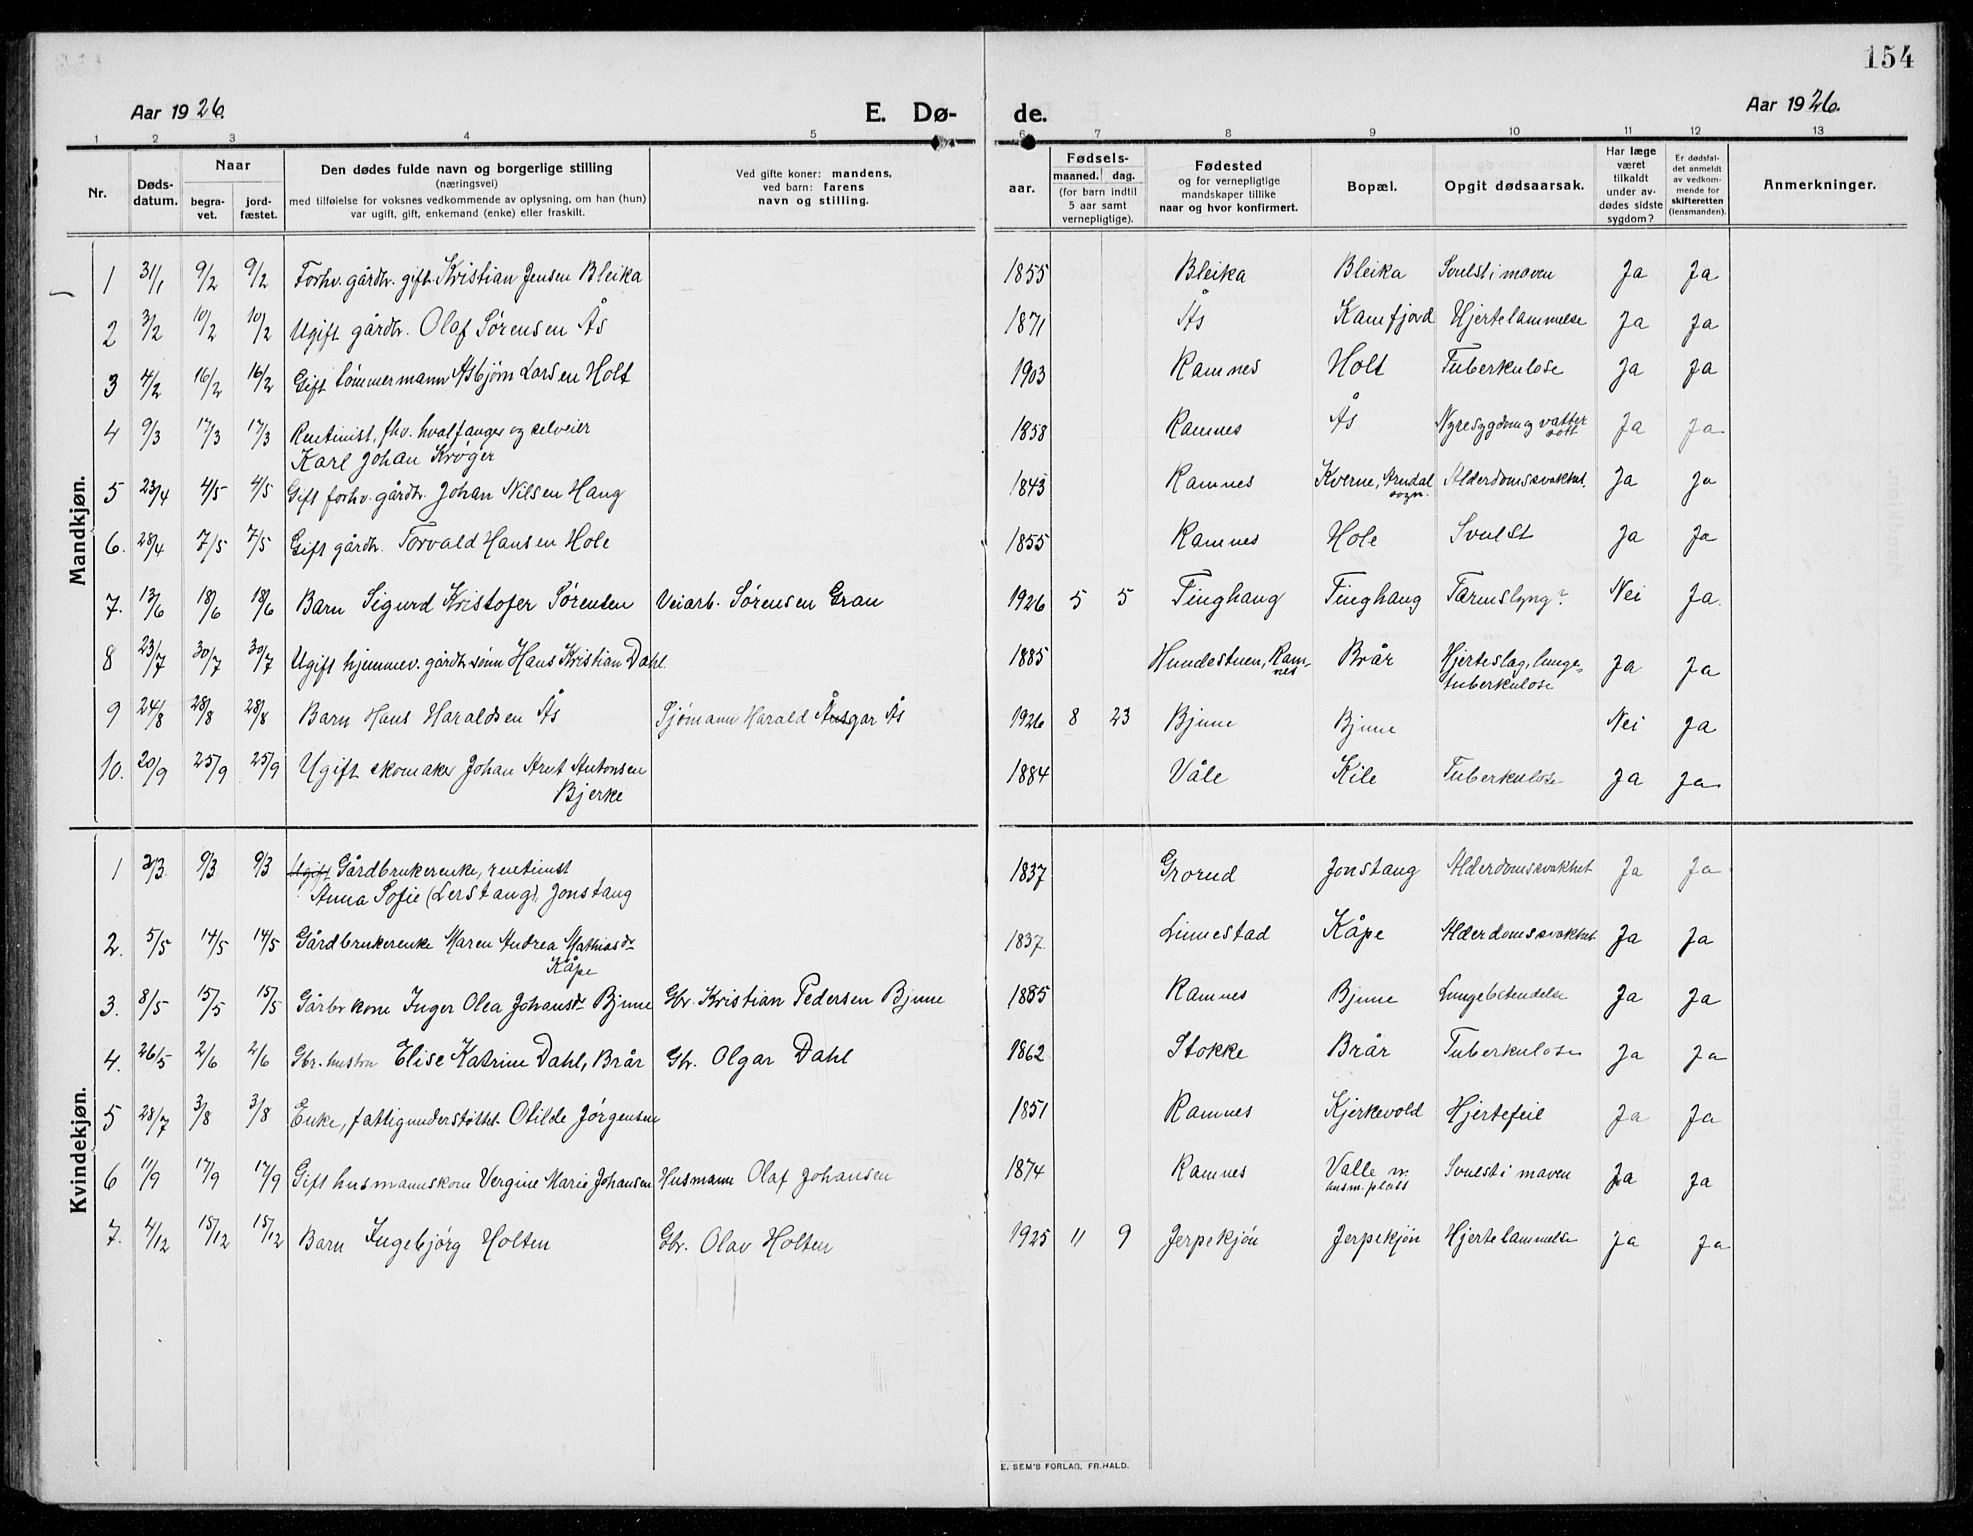 154
Aar 1926. E. Dø- de. Aar 1926.
1 2 3 4 5 6 7 8 9 10 11 12 13
Nr.
Døds-
datum.
Naar
begra-
vet.
jord-
fæstet.
Den dødes fulde navn og borgerlige stilling
(næringsvei)
med tilføielse for voksnes vedkommende av oplysning, om han (hun)
var ugift, gift, enkemand (enke) eller fraskilt.
Ved gifte koner: mandens,
ved barn: farens
navn og stilling.
Fødsels-
aar. maaned. dag.
(for barn indtil
5 aar samt
vernepligtige).
Fødested
og for vernepligtige
mandskaper tillike
naar og hvor konfirmert.
Bopæl.
Opgit dødsaarsak.
Har læge
været
tilkaldt
under av-
dødes sidste
sygdom?
Er dødsfal-
det anmeldt
av vedkom-
mende for
skifteretten
(lensmanden).
Anmerkninger.
Mandkjøn.
1 31/1 9/2 9/2 Forhv. gårdbr. gift. Kristian Jensen Bleika 1855 Bleika Bleika Svulst i maven Ja Ja
2 3/2 10/2 10/2 Ugift gårdbr. Olaf Sørensen Ås 1871 Ås Kamfjord Hjertelammelse Ja Ja
3 4/2 16/2 16/2 Gift tømmermann Asbjørn Larsen Holt 1903 Ramnes Holt Tuberkulose Ja Ja
4 9/3 17/3 17/3 Rentinist, fhv. hvalfanger og selveier 1858 Ramnes Ås Nyresygdom og vatter Ja Ja
Karl Johan Krøger sott
5 23/4 4/5 4/5 Gift forhv. gårdbr. Johan Nilsen Haug 1843 Ramnes Kverne, Arndal Alderdomssvakhet. Ja Ja
sogn.
6. 28/4 7/5 7/5 Gift gårdbr. Torvald Hansen Hole 1855 Ramnes Hole Svulst Ja Ja
7. 13/6 18/6 18/6 Barn Sigurd Kristofer Sørensen Veiarb. Sørensen Gran 1926 5 5 Tinghaug Tinghaug Tarmslyng? Nei Ja.
8 23/7 30/7 30/7 Ugift hjemmev. gårdbr. sønn Hans Kristian Dahl 1885 Hundestuen, Ram- Brår Hjerteslag, lunge- Ja Ja
nes tuberkulose
9 24/8 28/8 28/8 Barn Hans Haraldsen Ås Sjømann Harald Ansgar Ås 1926 8 23 Bjune Bjune Nei Ja
10. 20/9 25/9 25/9 Ugift skomaker Johan Arnt Antonsen 1884 Våle Kile Tuberkulose Ja Ja
Bjerke
Kvindekjøn.
1 2/3 9/3 9/3 Ugift Gårdbrukerenke, rentinist 1837 Grorud Jonstang Alderdomssvakhet Ja Ja
Anna Sofie (Lerstang), Jonstang
2. 5/5 14/5 14/5 Gårdbrukerenke Maren Andrea Mathiasdr 1837. Linnestad Kåpe Alderdomssvakhet Ja Ja
Kåpe
3. 8/5 15/5 15/5 Gårbr kone Inger Olea Johansdr Bjune Gbr. Kristian Pedersen Bjune 1885 Ramnes Bjune Lungebetendelse Ja Ja
4. 26/5 2/6 2/6 Gbr. hustru Elise Katrine Dahl, Brår Gbr. Olgar Dahl 1862 Stokke Brår Tuberkulose Ja Ja
5 28/7 3/8 3/8 Enke, fattigunderstøttet Otilde Jørgensen 1851 Ramnes Kjerkevold Hjertefeil Ja Ja
6 11/9 17/9 17/9 Gift husmannskone Vergine Marie Johansen Husmann Olaf Johansen 1874 Ramnes Valle n. Svulst i maven Ja Ja
husm.plass
7. 4/12 15/12 15/12 Barn Ingebjørg Holten Gbr. Olav Holten 1925 11 9 Jerpekjøn Jerpekjøn Hjertelammelse Ja Ja
E. SEM'S FORLAG, FR.HALD.